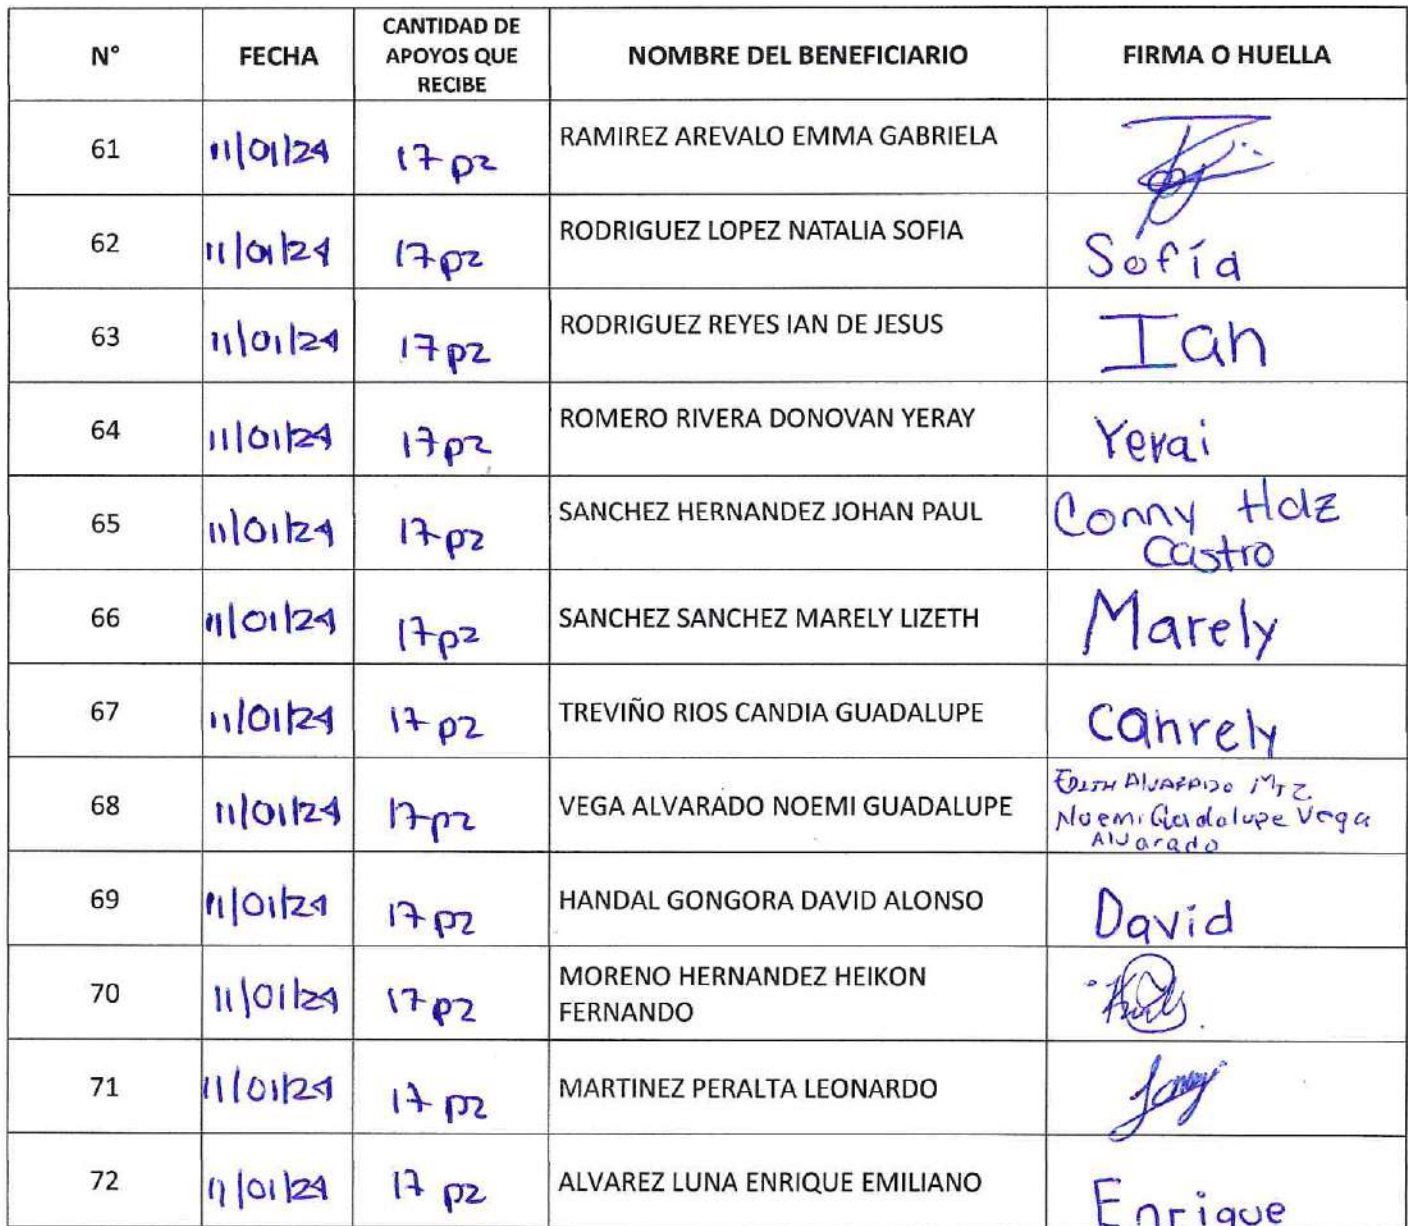 N° FECHA CANTIDAD DE APOYOS QUE RECIBE NOMBRE DEL BENEFICIARIO FIRMA O HUELLA
61 11/01/24 17 pz RAMIREZ AREVALO EMMA GABRIELA
62 11/01/24 17 pz RODRIGUEZ LOPEZ NATALIA SOFIA Sofía
63 11/01/24 17 pz RODRIGUEZ REYES IAN DE JESUS Ian
64 11/01/24 17 pz ROMERO RIVERA DONOVAN YERAY Yerai
65 11/01/24 17 pz SANCHEZ HERNANDEZ JOHAN PAUL Conny Hdz
Castro
66 11/01/24 17 pz SANCHEZ SANCHEZ MARELY LIZETH Marely
67 11/01/24 17 pz TREVIÑO RIOS CANDIA GUADALUPE Canrely
68 11/01/24 17 pz VEGA ALVARADO NOEMI GUADALUPE EDITH ALVARADO MTZ
Noemi Guadalupe Vega
Alvarado
69 11/01/24 17 pz HANDAL GONGORA DAVID ALONSO David
70 11/01/24 17 pz MORENO HERNANDEZ HEIKON
FERNANDO
71 11/01/24 17 pz MARTINEZ PERALTA LEONARDO
72 11/01/24 17 pz ALVAREZ LUNA ENRIQUE EMILIANO Enrique